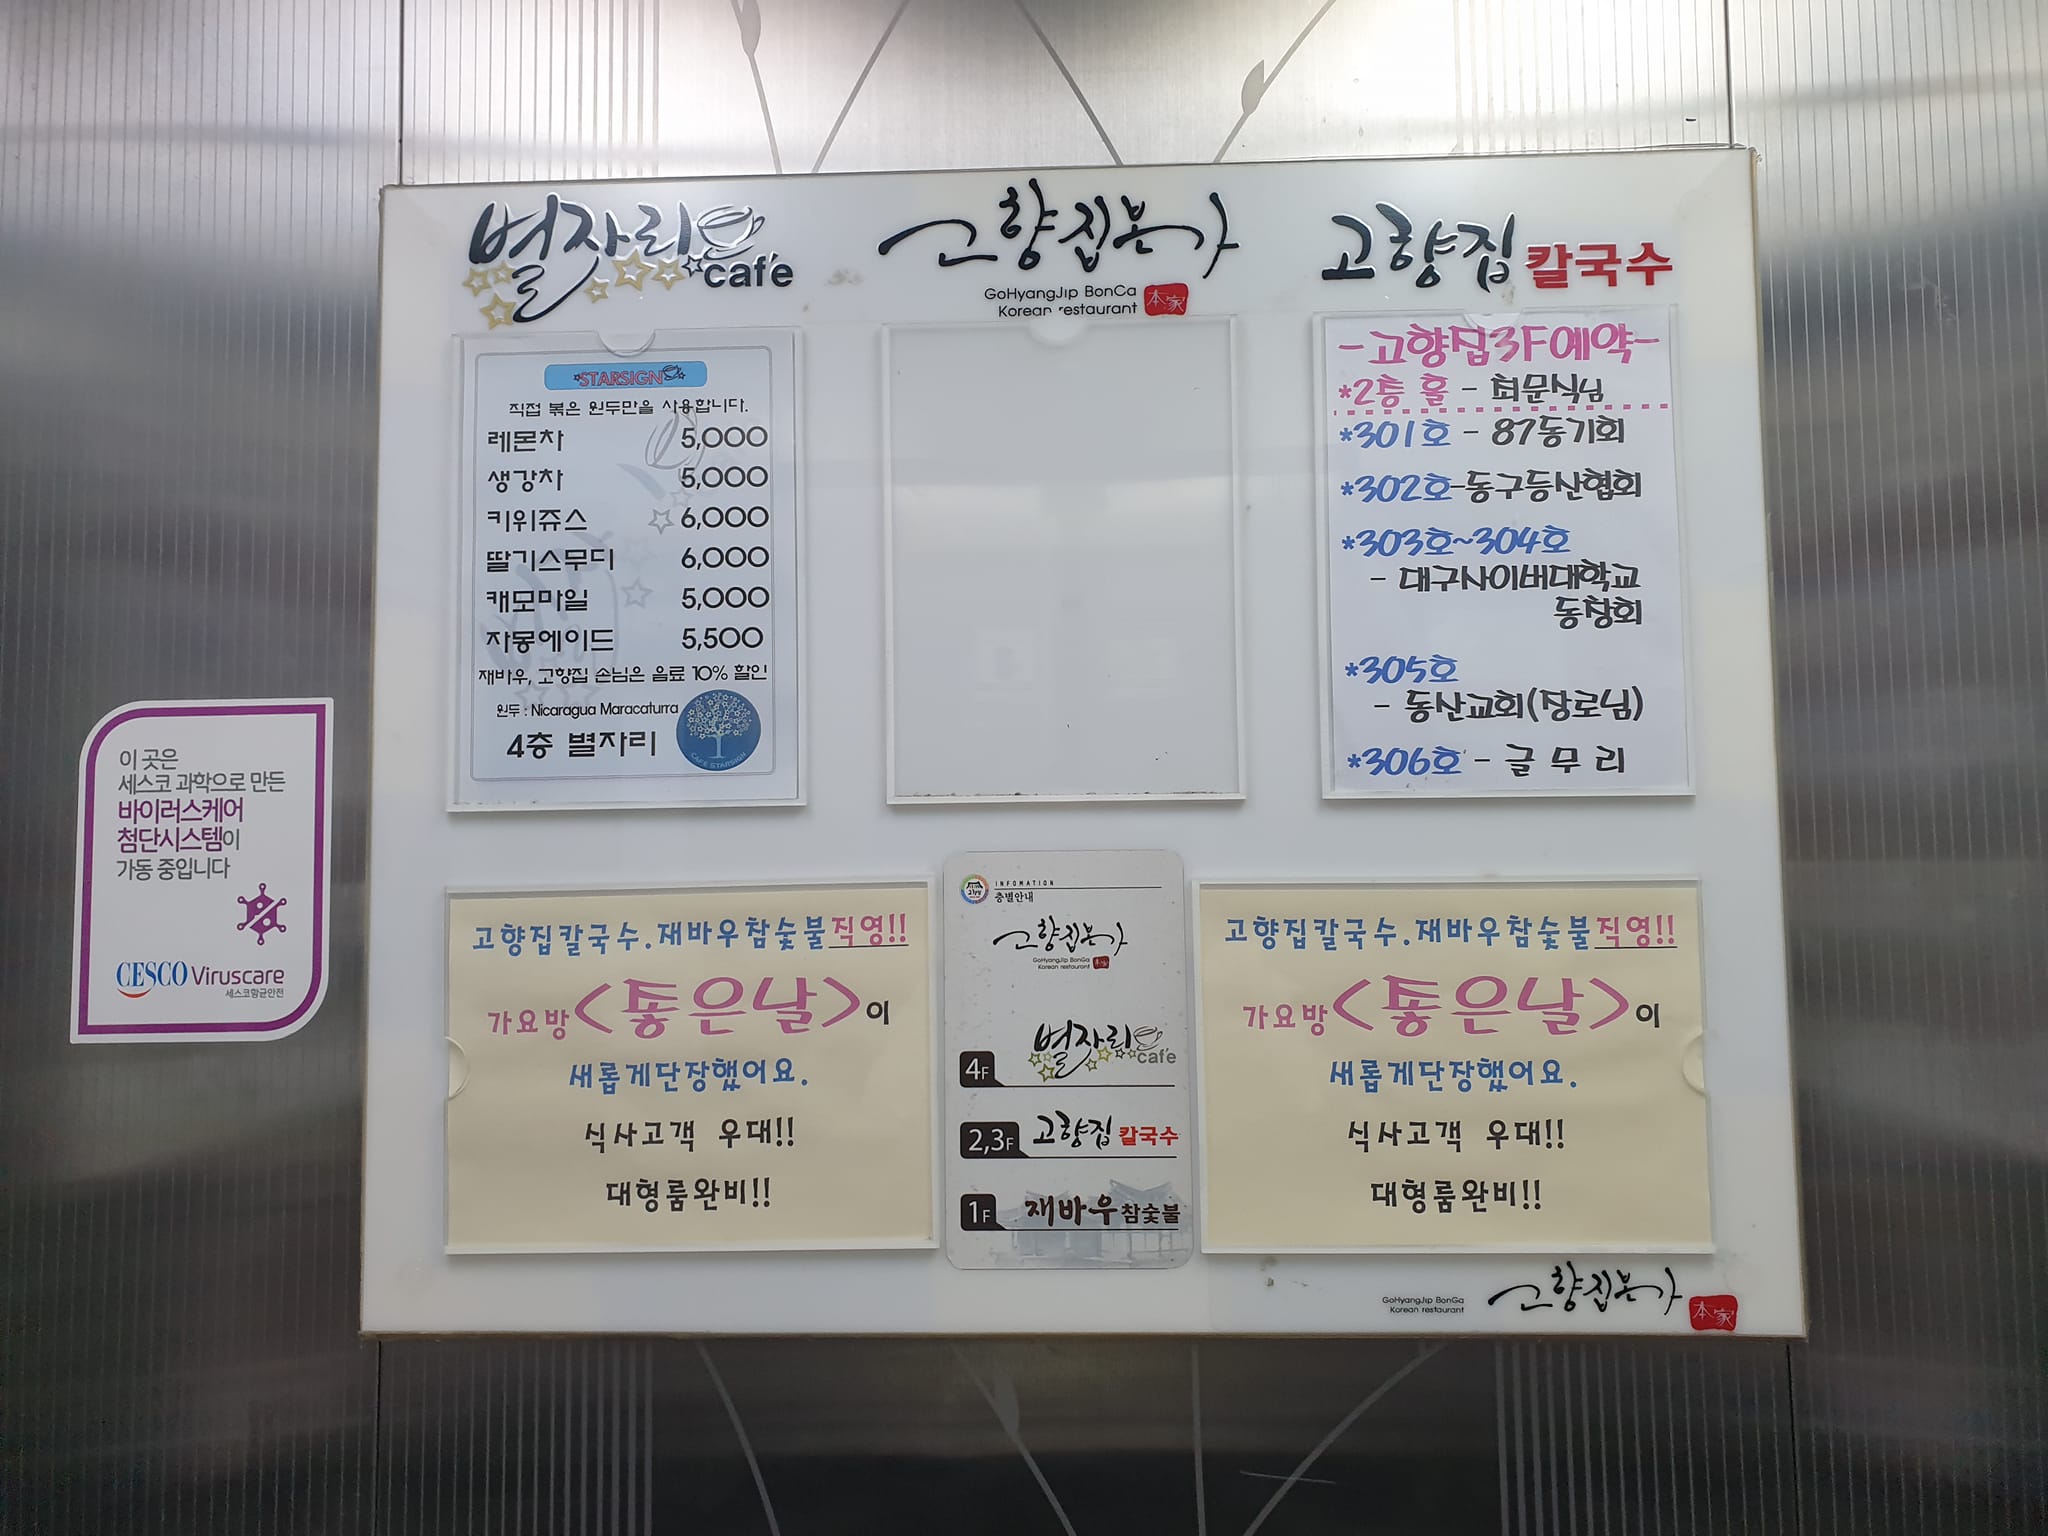 별자리
café
고향집본가
GoHyangJip BonGa
Korean restaurant
本家
고향집 칼국수
STARSIGN
직접 볶은 원두만을 사용합니다.
레몬차 5,000
생강차 5,000
키위쥬스 6,000
딸기스무디 6,000
캐모마일 5,000
자몽에이드 5,500
재바우, 고향집 손님은 음료 10% 할인
원두 : Nicaragua Maracaturra
4층 별자리
CAFE STARSIGN
-고향집3F예약-
*2층 홀 - 최문식님
*301호 - 87동기회
*302호-동구등산협회
*303호~304호
- 대구사이버대학교
동창회
*305호
- 동산교회(장로님)
*306호 - 글무리
이 곳은
세스코 과학으로 만든
바이러스케어
첨단시스템이
가동 중입니다
CESCO Viruscare
세스코항균안전
고향집칼국수.재바우참숯불직영!!
가요방<좋은날>이
새롭게단장했어요.
식사고객 우대!!
대형룸완비!!
INFOMATION
층별안내
고향집본가
GoHyangJip BonGa
Korean restaurant
本家
4F 별자리 café
2,3F 고향집 칼국수
1F 재바우 참숯불
고향집칼국수.재바우참숯불직영!!
가요방<좋은날>이
새롭게단장했어요.
식사고객 우대!!
대형룸완비!!
GoHyangJip BonGa
Korean restaurant
고향집본가
本家